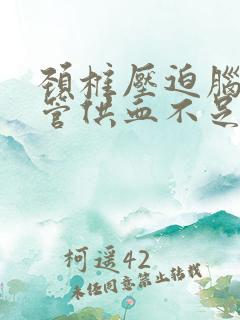 頚椎壓迫腦
管供血不足
柯遥42
未经同意禁止转载